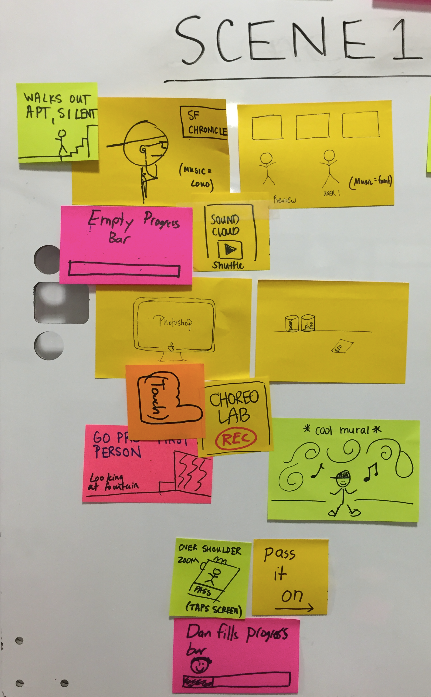 SCENE 1
WALKS OUT
APT, SILENT
SF
CHRONICLE
(MUSIC =
LOUD)
(Music = Loud)
Empty Progress
Bar
SOUND
CLOUD
Shuttle
Photoshop
(Touch)
CHOREO
LAB
REC
GO
FIRST
PERSON
Looking
at fountain
* Cool mural *
OVER SHOULDER
ZOOM
PASS
(TAPS SCREEN)
Pass
it
on
Dan fills progress
bar